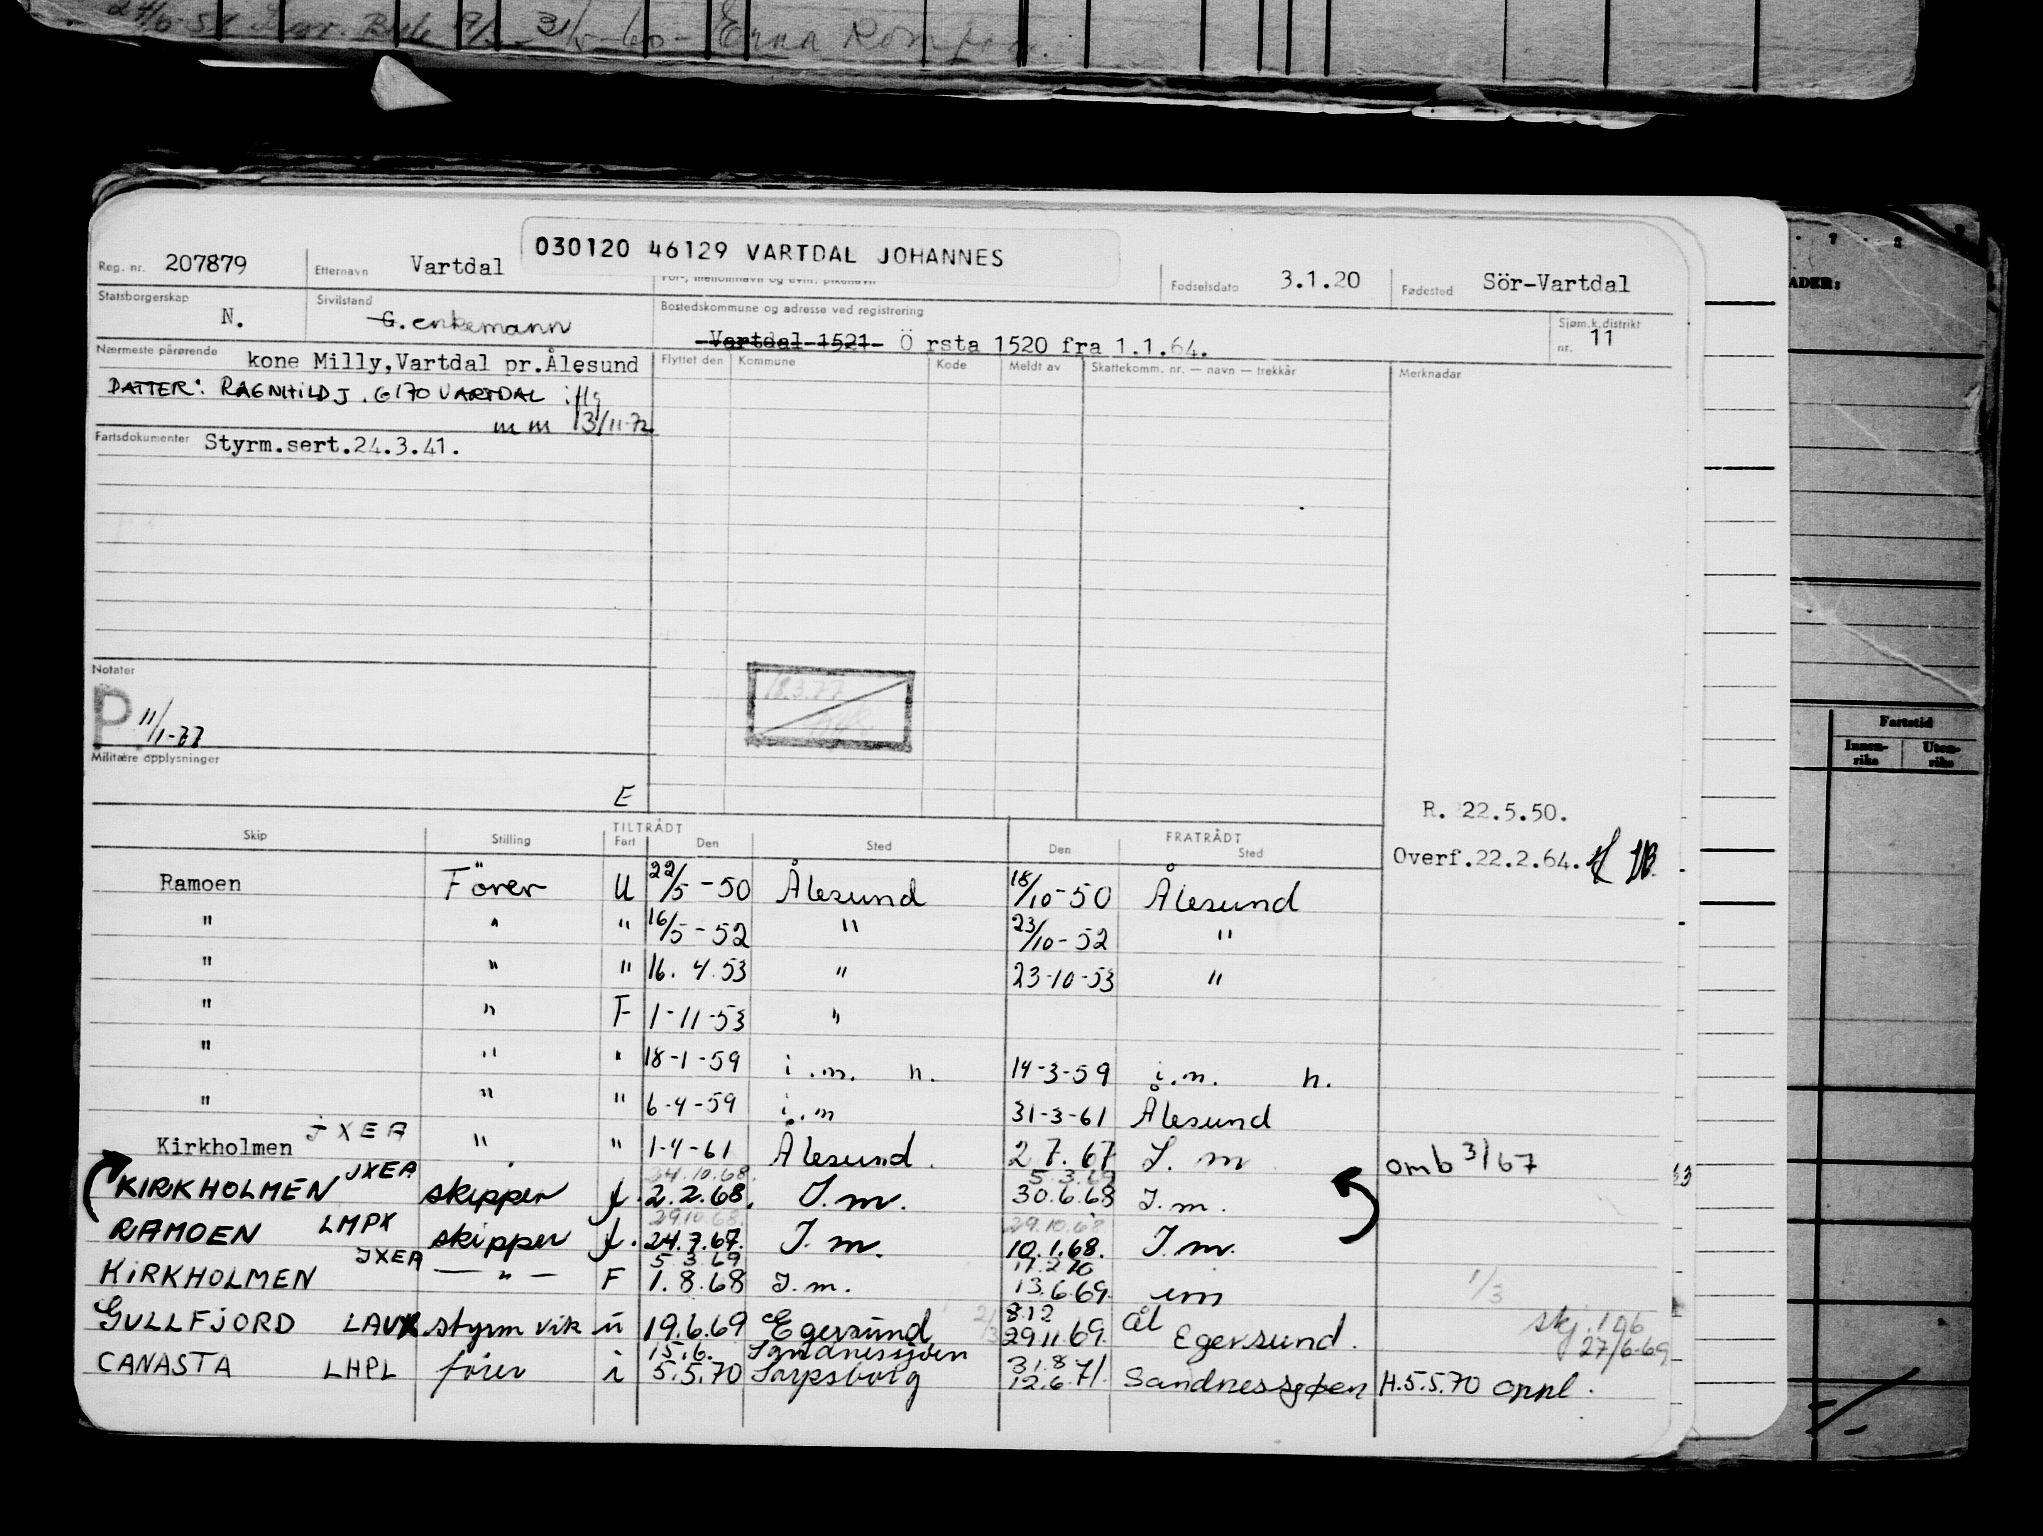 030120 46129 VARTDAL JOHANNES
Reg. nr. 207879 Etternavn Vartdal Fødselsdato 3.1.20 Fødested Sör-Vartdal
Statsborgerskap N. Sivilstand G. enkemann Bostedskommune og adresse ved registrering
Vartdal 1521 Örsta 1520 fra 1.1.64. Sjøm.k.distrikt nr. 11
Nærmeste pårørende kone Milly,Vartdal pr.Ålesund Flyttet den Kommune Kode Meldt av Skattekomm. nr. — navn — trekkår Merknadar
DATTER: RAGNHILD J. 6170 VARTDAL iflg
m m 13/11-72
Fartsdokumenter Styrm.sert.24.3.41.
Notater
P 11/1-77
18.3.77
Militære opplysninger
E
R. 22.5.50.
Overf.22.2.64.
Skip Stilling TILTRÅDT Fart Den Sted FRATRÅDT Den Sted
Ramoen Förer U 22/5-50 Ålesund 18/10-50 Ålesund
" " " 16/5-52 " 23/10-52 "
" " " 16.4.53 " 23-10-53 "
" " F 1-11-53 "
" " " 18-1-59 i.m. h. 14-3-59 i.m. h.
" " " 6-4-59 i.m 31-3-61 Ålesund
Kirkholmen JXEA " " 1-4-61 Ålesund. 2.7.67 I. m omb 3/67
24.10.68. 5.3.69
KIRKHOLMEN JXEA skipper f. 2.2.68. I.m. 30.6.68 I.m.
29.10.68. 29.10.68
RAMOEN LMPX skipper f. 24.7.67. I.m. 10.1.68. I.m.
5.3.69 17.2.70
KIRKHOLMEN JXEA — " — F 1.8.68 I.m. 13.6.69. im 1/3
8.12 ål
GULLFJORD LAUX styrm vik u 19.6.69 Egersund 29.11.69. Egersund. skj. 106 27/6-69
15.6. Sandnessjøen 31.8
CANASTA LHPL fører i 5.5.70 Sarpsborg 12.6.71. Sandnessjøen H.5.5.70 oppl.
Fartstid
Innen-rike Uten-rike